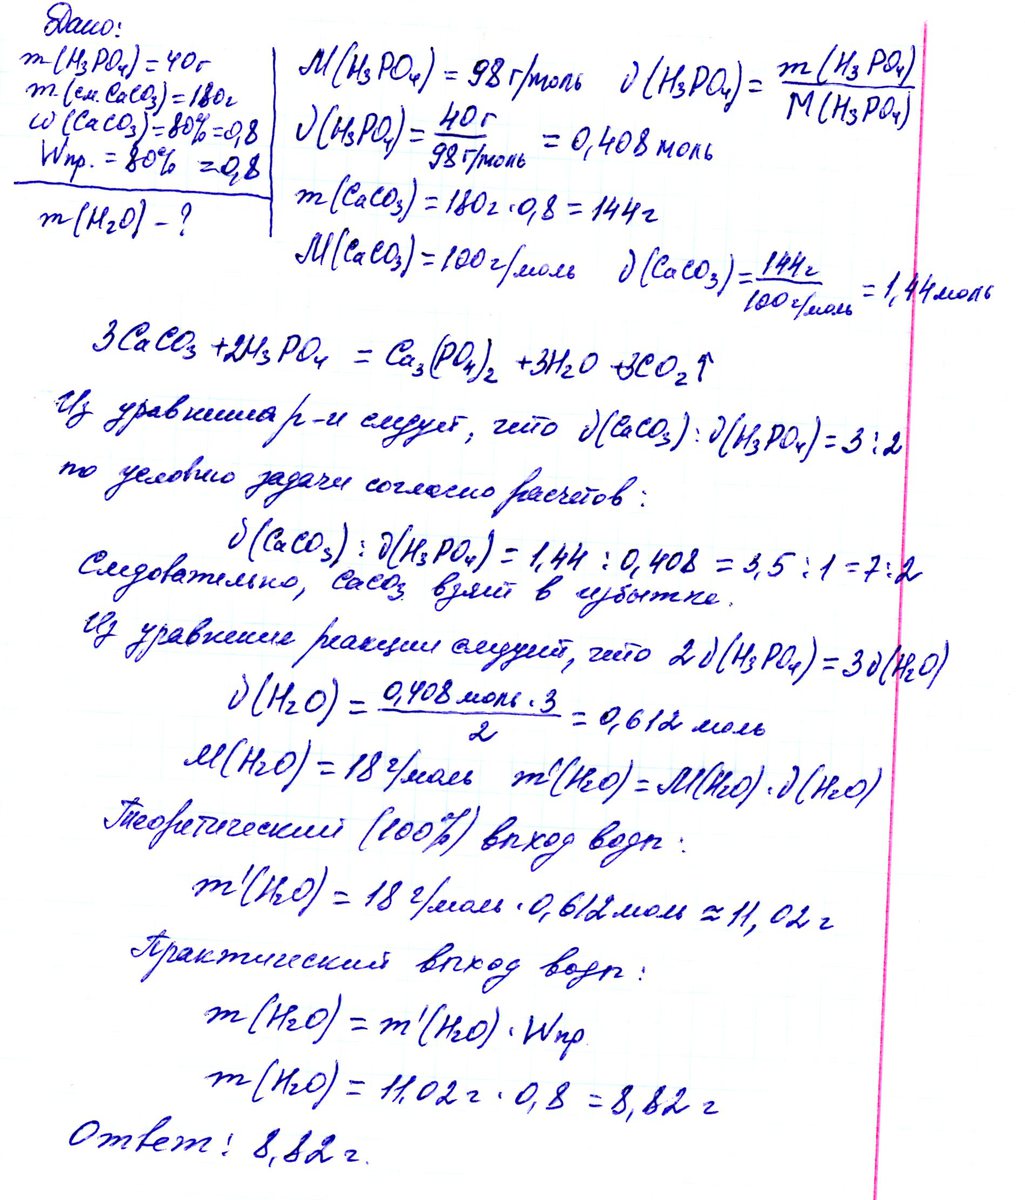 Дано:
m(H₃PO₄)=40г
m(см.CaCO₃)=180г
ω(CaCO₃)=80%=0,8
Wпр.=80% =0,8
m(H₂O)-?
M(H₃PO₄)=98г/моль ν(H₃PO₄)=m(H₃PO₄)/M(H₃PO₄)
ν(H₃PO₄)=40г/98г/моль =0,408моль
m(CaCO₃)=180г·0,8=144г
M(CaCO₃)=100г/моль ν(CaCO₃)=144г/100г/моль=1,44моль
3CaCO₃+2H₃PO₄ = Ca₃(PO₄)₂ +3H₂O +3CO₂↑
Из уравнения р-и следует, что ν(CaCO₃):ν(H₃PO₄)=3:2
по условию задачи согласно расчетов:
ν(CaCO₃):ν(H₃PO₄)=1,44:0,408=3,5:1=7:2
Следовательно, CaCO₃ взят в избытке.
Из уравнение реакции следует, что 2ν(H₃PO₄)=3ν(H₂O)
ν(H₂O)=0,408моль·3/2=0,612 моль
M(H₂O)=18г/моль m'(H₂O)=M(H₂O)·ν(H₂O)
Теоретический (100%) выход воды:
m'(H₂O)=18г/моль·0,612моль≈11,02г
Практический выход воды:
m(H₂O)=m'(H₂O)·Wпр
m(H₂O)=11,02г·0,8=8,82г
Ответ: 8,82г.